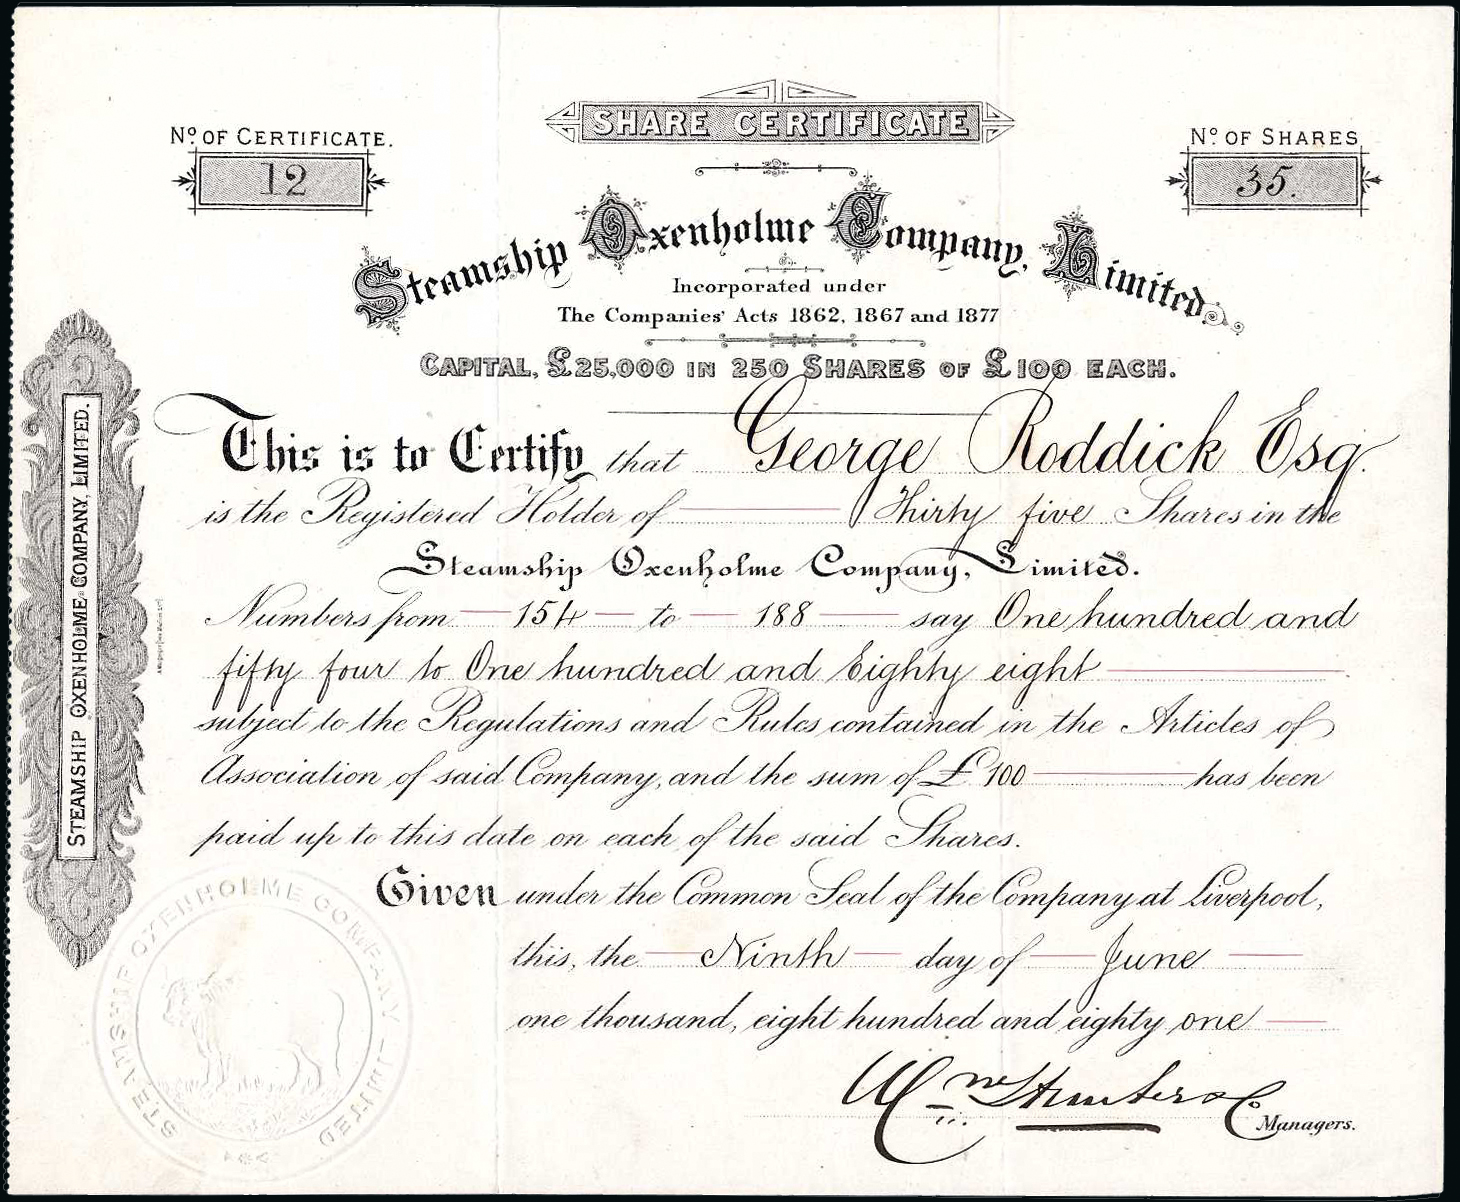 SHARE CERTIFICATE
No. OF CERTIFICATE.
12
No. OF SHARES
35.
Steamship Oxenholme Company, Limited.
Incorporated under
The Companies' Acts 1862, 1867 and 1877
CAPITAL, £25,000 IN 250 SHARES OF £100 EACH.
This is to Certify that George Roddick Esq.
is the Registered Holder of Thirty five Shares in the
Steamship Oxenholme Company, Limited.
Numbers from 154 to 188 say One hundred and
fifty four to One hundred and Eighty eight
subject to the Regulations and Rules contained in the Articles of
Association of said Company, and the sum of £ 100 has been
paid up to this date on each of the said Shares.
Given under the Common Seal of the Company at Liverpool,
this, the Ninth day of June
one thousand, eight hundred and eighty one
Wm & Co
Managers.
STEAMSHIP OXENHOLME COMPANY, LIMITED.
STEAMSHIP OXENHOLME COMPANY LIMITED